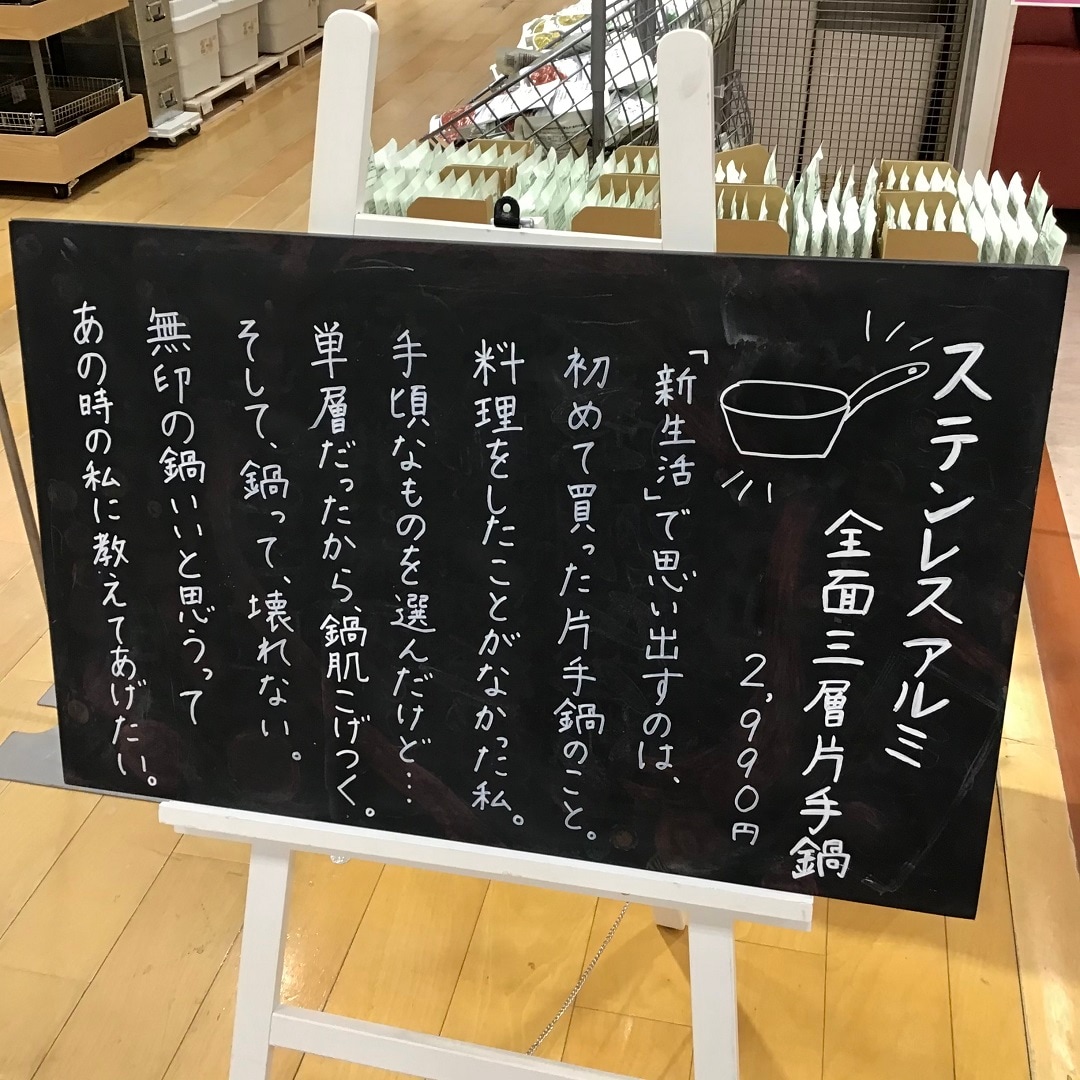 ステンレスアルミ
全面三層片手鍋
2,990円
「新生活」で思い出すのは、
初めて買った片手鍋のこと。
料理をしたことがなかった私。
手頃なものを選んだけど…
単層だったから、鍋肌こげつく。
そして、鍋って、壊れない。
無印の鍋いいと思うって
あの時の私に教えてあげたい。